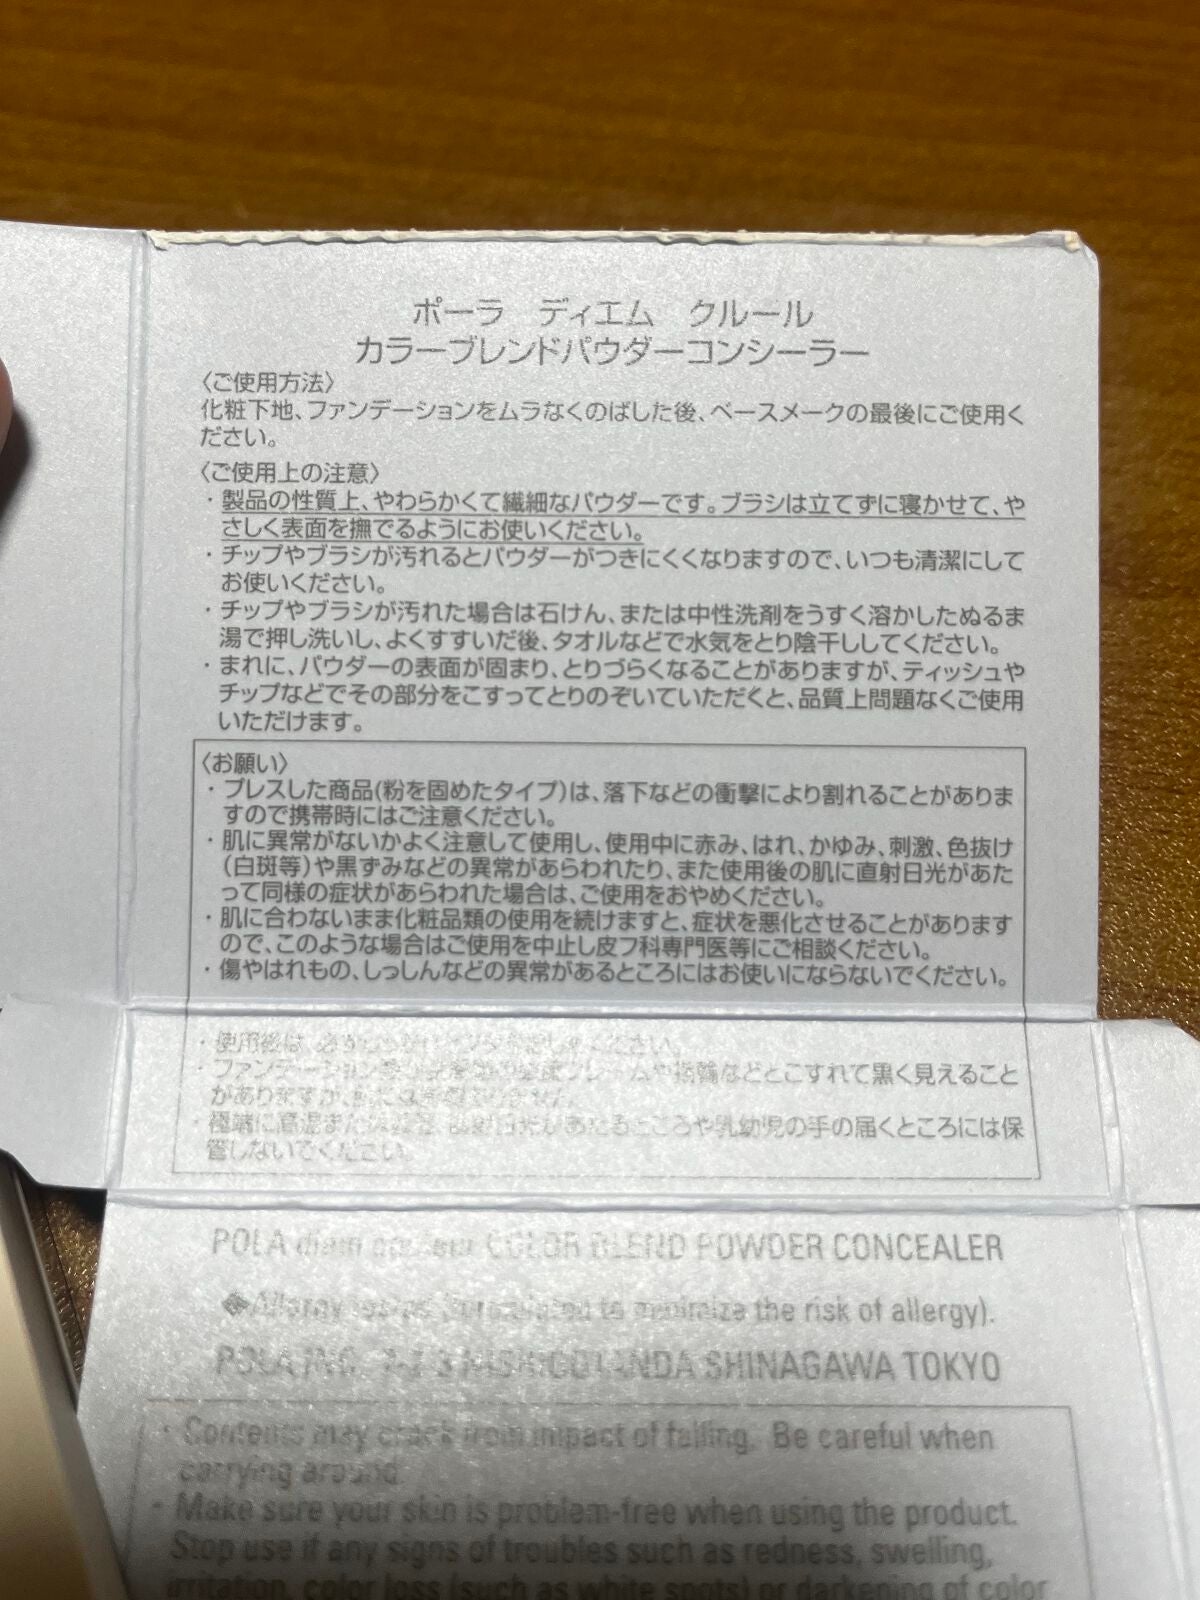 ポーラ ディエム クルール
カラーブレンドパウダーコンシーラー
〈ご使用方法〉
化粧下地、ファンデーションをムラなくのばした後、ベースメークの最後にご使用く
ださい。
〈ご使用上の注意〉
・製品の性質上、やわらかくて繊細なパウダーです。ブラシは立てずに寝かせて、や
さしく表面を撫でるようにお使いください。
・チップやブラシが汚れるとパウダーがつきにくくなりますので、いつも清潔にして
お使いください。
・チップやブラシが汚れた場合は石けん、または中性洗剤をうすく溶かしたぬるま
湯で押し洗いし、よくすすいだ後、タオルなどで水気をとり陰干ししてください。
・まれに、パウダーの表面が固まり、とりづらくなることがありますが、ティッシュや
チップなどでその部分をこすってとりのぞいていただくと、品質上問題なくご使用
いただけます。
〈お願い〉
・プレスした商品(粉を固めたタイプ)は、落下などの衝撃により割れることがありま
すので携帯時にはご注意ください。
・肌に異常がないかよく注意して使用し、使用中に赤み、はれ、かゆみ、刺激、色抜け
(白斑等)や黒ずみなどの異常があらわれたり、また使用後の肌に直射日光があた
って同様の症状があらわれた場合は、ご使用をおやめください。
・肌に合わないまま化粧品類の使用を続けますと、症状を悪化させることがあります
ので、このような場合はご使用を中止し皮フ科専門医等にご相談ください。
・傷やはれもの、しっしんなどの異常があるところにはお使いにならないでください。
・使用後は、ください。
・ファンデーションフレームや指輪などとこすれて黒く見えること
がありますが、
・極端に高温または直射日光があたるところや乳幼児の手の届くところには保
管しないでください。
POLA diem couleur COLOR BLEND POWDER CONCEALER
Allergy tested (formulated to minimize the risk of allergy).
POLA INC. NISHIGOTANDA SHINAGAWA TOKYO
・Contents may crack from impact of falling. Be careful when
carrying around.
・Make sure your skin is problem-free when using the product.
Stop use if any signs of troubles such as redness, swelling,
irritation, color loss (such as white spots) or darkening of color